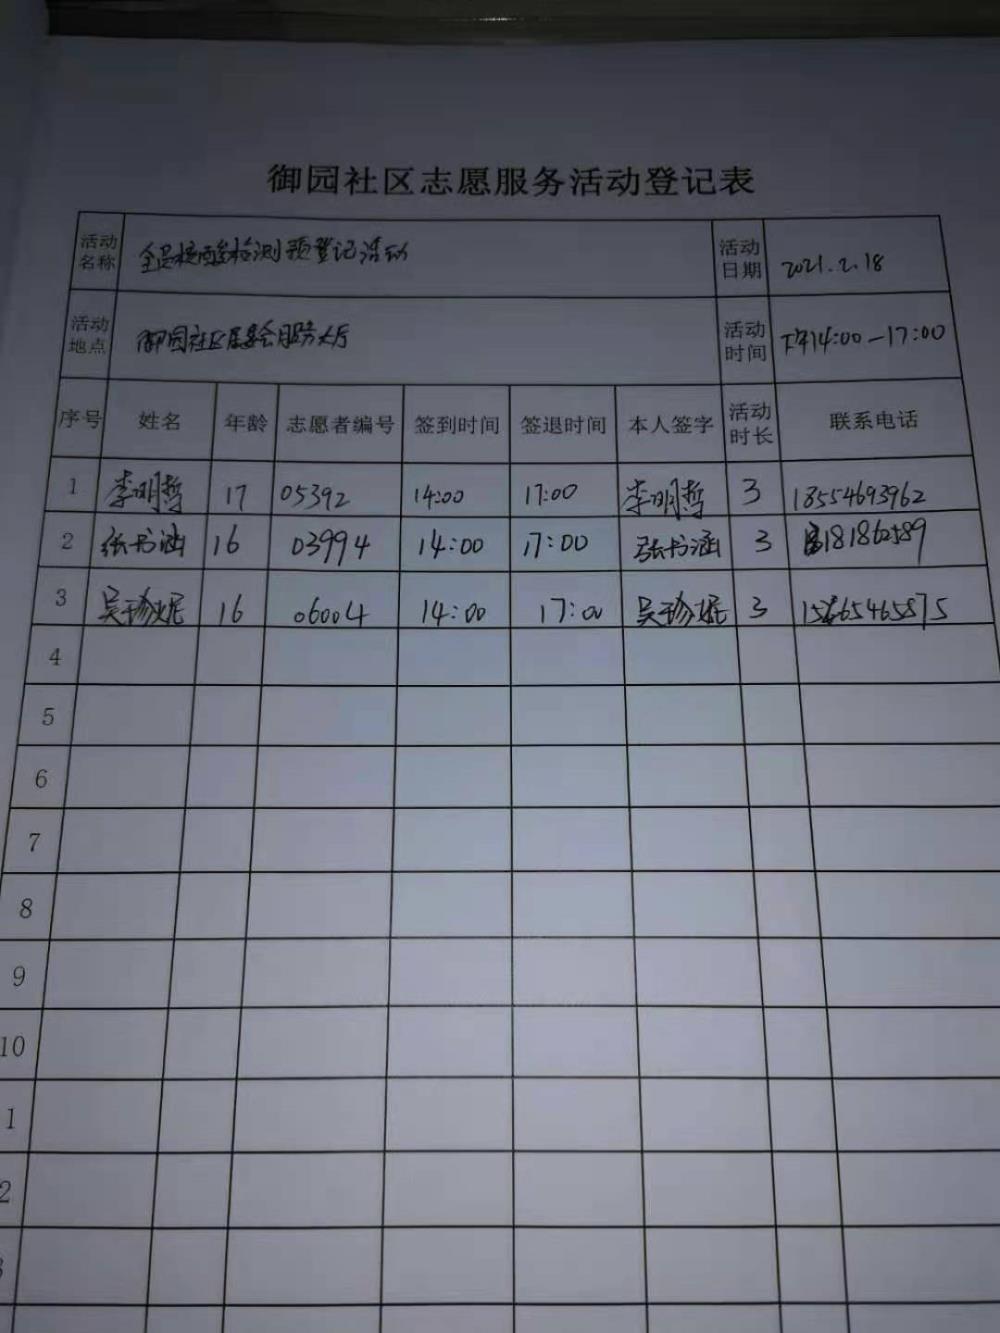 御园社区志愿服务活动登记表
活动名称 全员核酸检测预登记活动 活动日期 2021.2.18
活动地点 御园社区居委会服务大厅 活动时间 下午14:00—17:00
序号 姓名 年龄 志愿者编号 签到时间 签退时间 本人签字 活动时长 联系电话
1 李明哲 17 05392 14:00 17:00 李明哲 3 18554693962
2 张书涵 16 03994 14:00 17:00 张书涵 3
3 吴珍妮 16 06004 14:00 17:00 吴珍妮 3
4
5
6
7
8
9
10
1
2
3